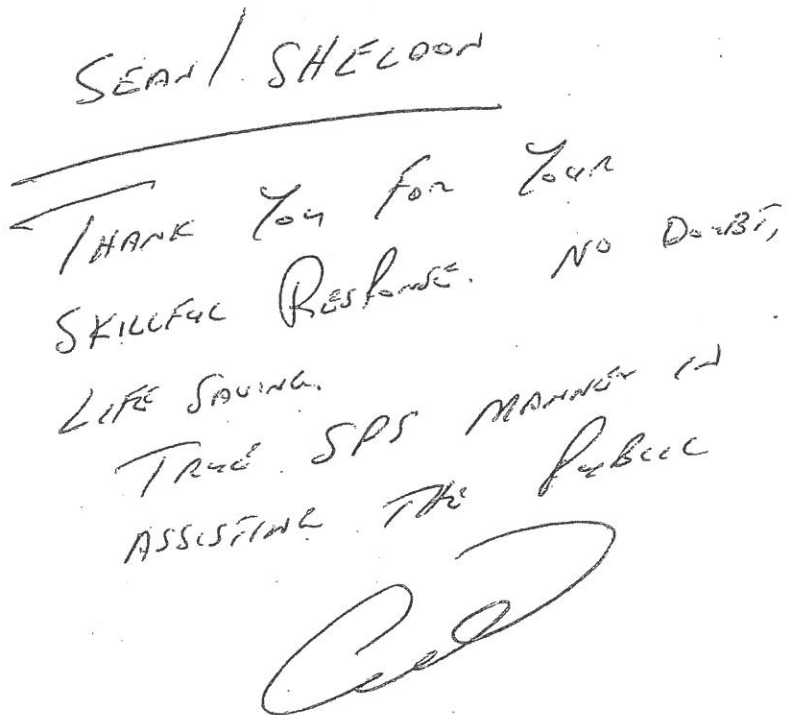 SEAN / SHELDON
THANK YOU FOR YOUR
SKILLFUL RESPONSE. NO DOUBT,
LIFE SAVING.
TRUE SPS MANNER IN
ASSISTING THE PUBLIC